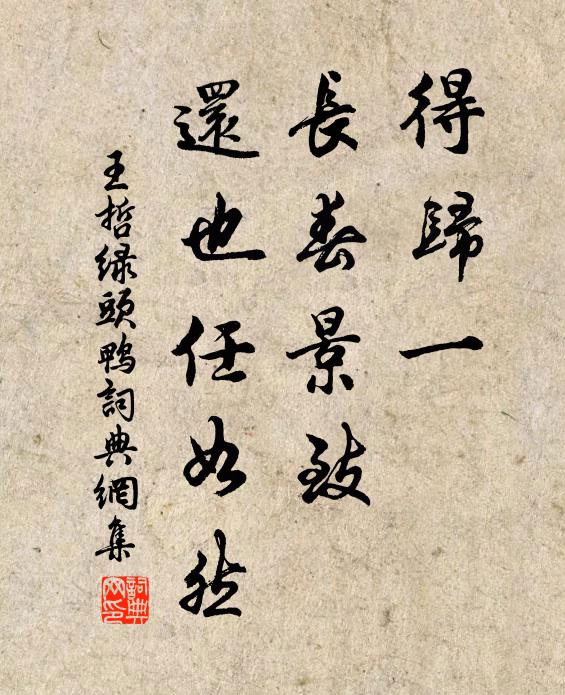 得歸一
長春景致
還也任如然
王哲綠頭鴨詞典網集
詞典網印